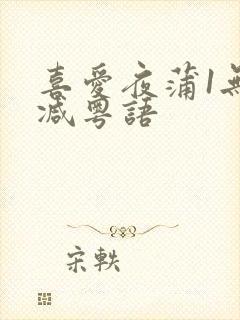 喜愛夜蒲1無
減粵語
宋軼